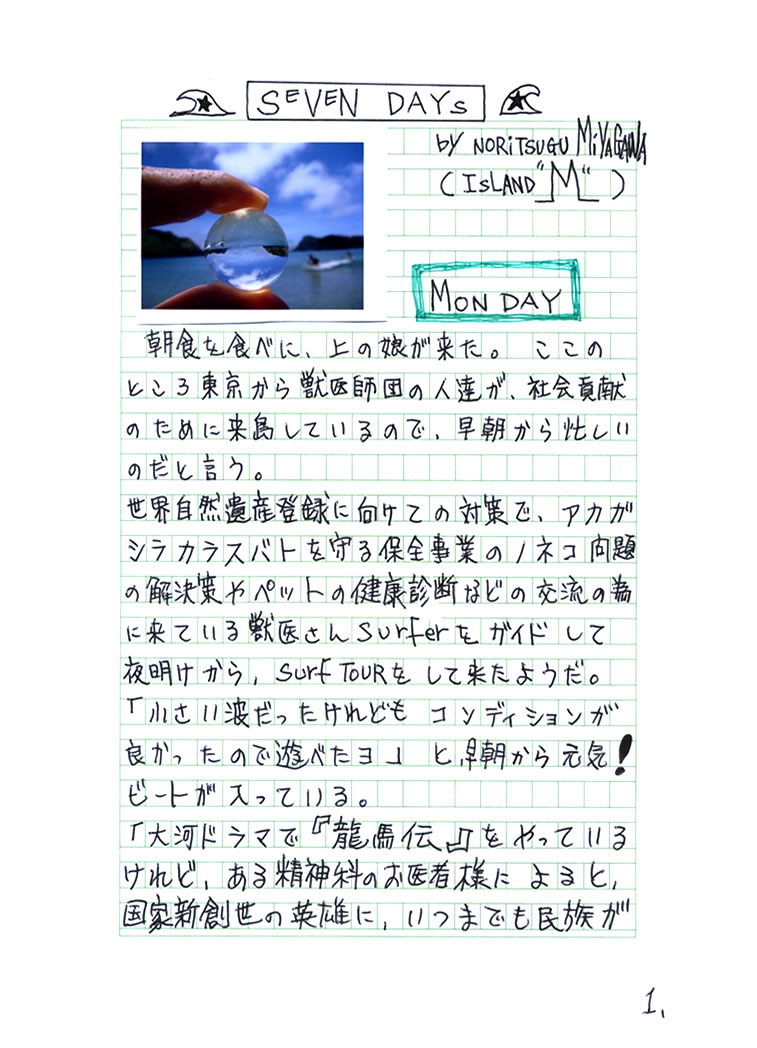 SEVEN DAYS
by NORITSUGU MIYAGAWA
(ISLAND "M")
MONDAY
朝食を食べに、上の娘が来た。 ここの
ところ東京から獣医師団の人達が、社会貢献
のために来島しているので、早朝から忙しい
のだと言う。
世界自然遺産登録に向けての対策で、アカガ
シラカラスバトを守る保全事業のノネコ問題
の解決策やペットの健康診断などの交流の為
に来ている獣医さんSurferをガイドして
夜明けから, Surf TOURをして来たようだ。
「小さい波だったけれどもコンディションが
良かったので遊べたヨ」と、早朝から元気!
ビートが入っている。
「大河ドラマで『龍馬伝』をやっている
けれど、ある精神科のお医者様によると,
国家新創世の英雄に、いつまでも民族が
1.